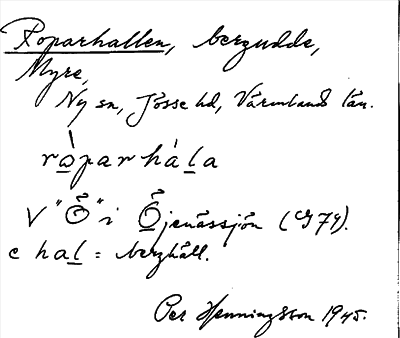 Roparhallen, bergudde,
Myre,
Ny sn, Jösse hd, Värmlands län.
ròparhála
V "Ö" i Öjenässjön (G74).
c hal = berghäll.
Per Henningsson 1945.